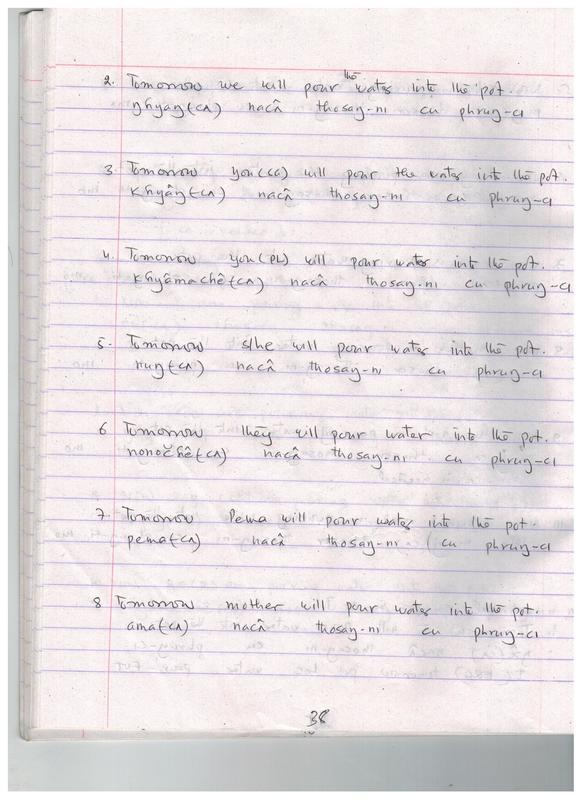 2. Tomorrow we will pour the water into the pot.
ŋhyaŋ(ca) nacâ thosaŋ-ni cu phruŋ-ci
3. Tomorrow you(sg) will pour the water into the pot.
khyâŋ(ca) nacâ thosaŋ-ni cu phruŋ-ci
4. Tomorrow you(pl) will pour water into the pot.
khyâmachê(ca) nacâ thosaŋ-ni cu phruŋ-ci
5. Tomorrow s/he will pour water into the pot.
nacâ thosaŋ-ni cu phruŋ-ci
6 Tomorrow they will pour water into the pot.
nonočhê(ca) nacâ thosaŋ-ni cu phruŋ-ci
7. Tomorrow Pema will pour water into the pot.
pema(ca) nacâ thosaŋ-ni cu phruŋ-ci
8 Tomorrow mother will pour water into the pot.
ama(ca) nacâ thosaŋ-ni cu phruŋ-ci
38